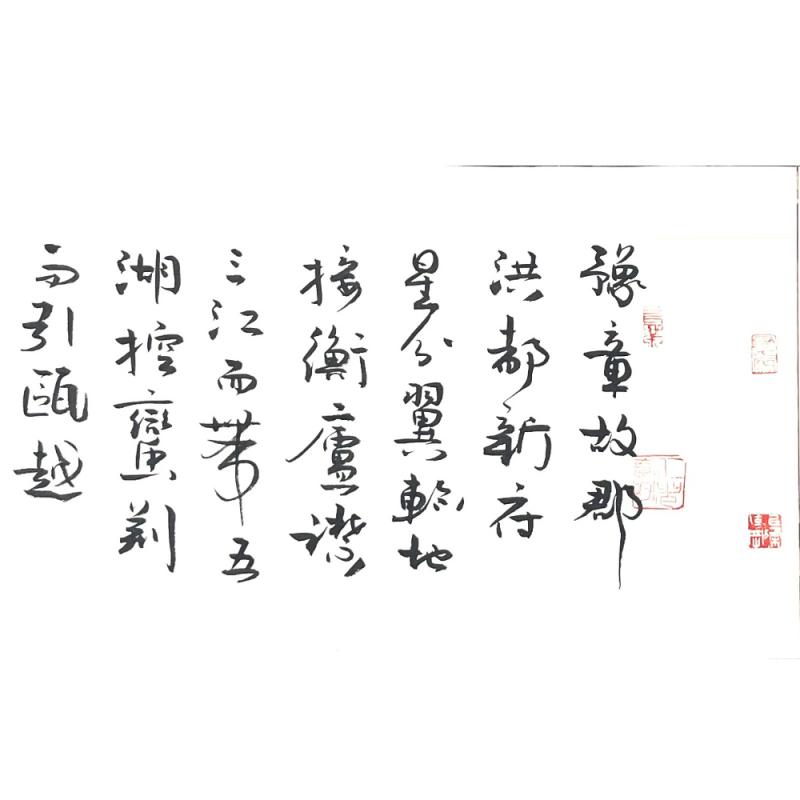 豫章故郡
洪都新府
星分翼軫地
接衡廬襟
三江而帶五
湖控蠻荆
而引甌越